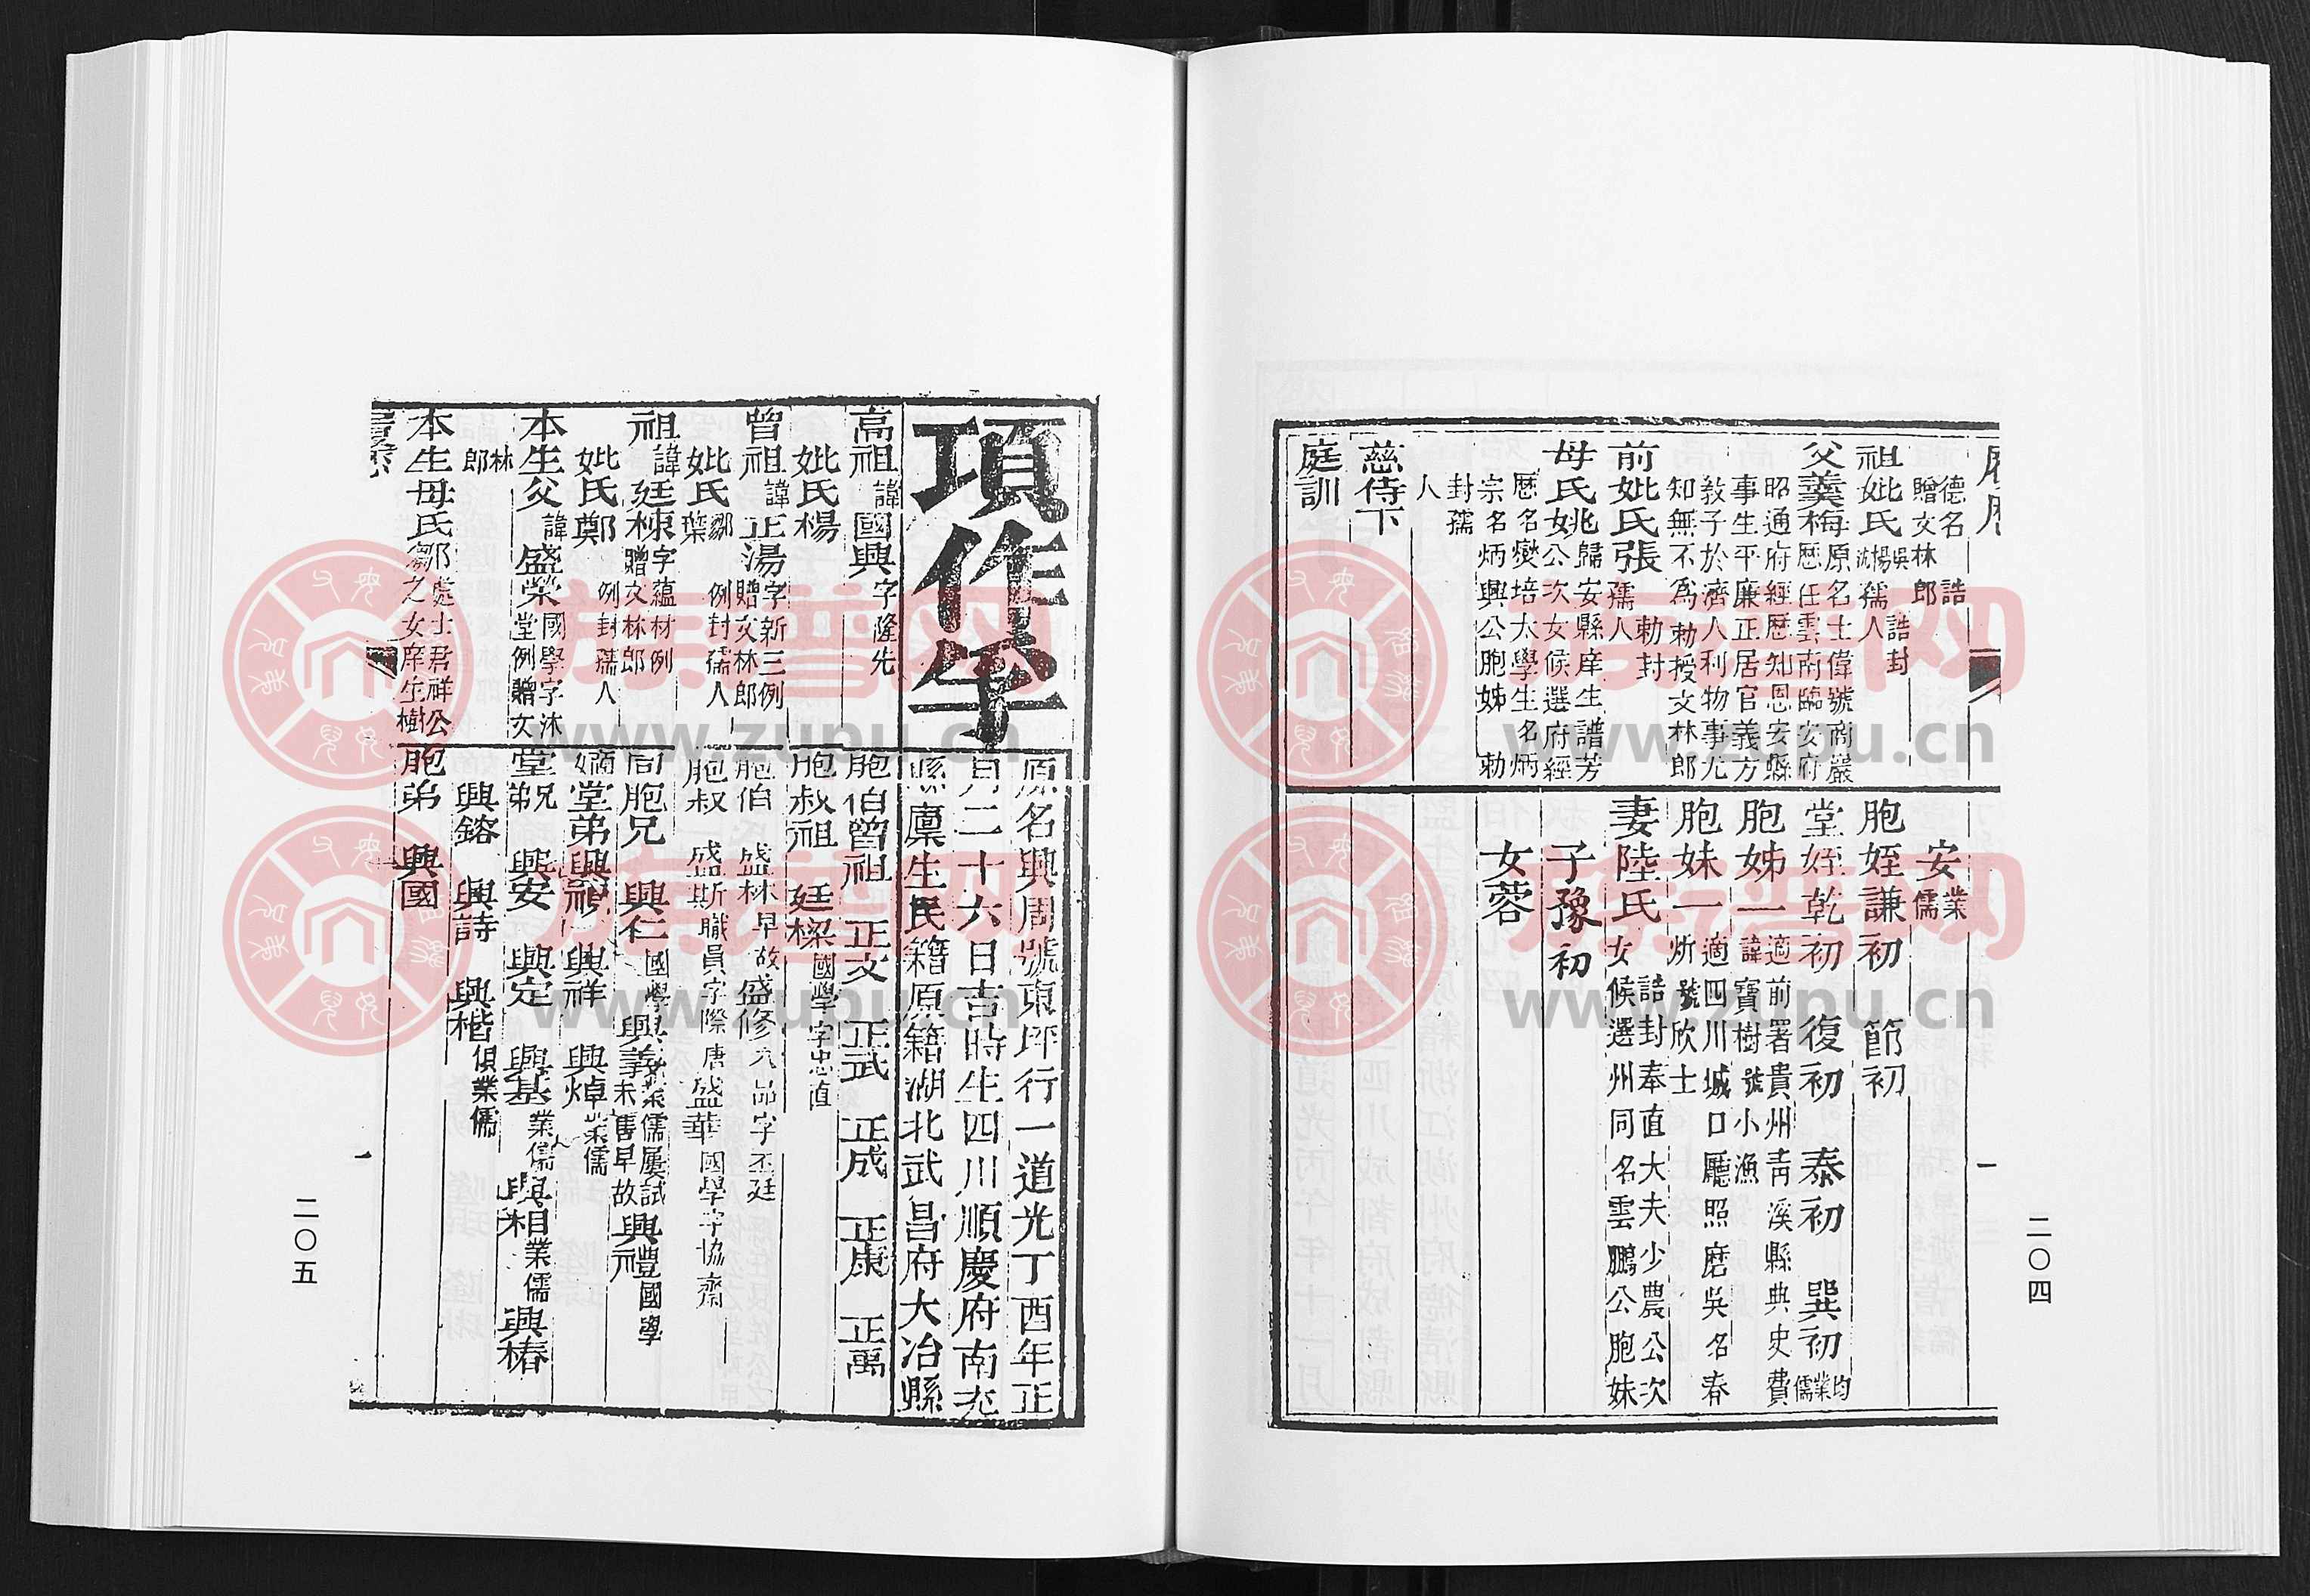 德名　誥
贈文林郎
祖妣氏吳楊沈孺人誥封
父羹梅原名士偉號商嚴
歷任雲南臨安府
昭通府經歷知恩安縣
事生平廉正居官義方
教子於濟人利物事尤
知無不爲勅授文林郎
前妣氏張孺人勅封
母氏姚歸安縣庠生譜芳
公次女候選府經
歷名燮培太學生名炳
宗名炳興公胞姊　勅
封孺
人
慈侍下
庭訓
安業儒
胞姪謙初　節初
堂姪乾初　復初　泰初　巽初均業儒
胞姊一適前署貴州靑溪縣典史費
諱寶樹號小漁
胞妹一適四川城口廳照磨吳名春
炘號欣士
妻陸氏誥封奉直大夫少農公次
女候選州同名雲鵬公胞妹
子豫初
女蓉
一
二〇四
項作孚
原名興周號東坪行一道光丁酉年正
月二十六日吉時生四川順慶府南充
縣廩生民籍原籍湖北武昌府大冶縣
高祖諱國興字隆先
妣氏楊
曾祖諱正湯字新三例
贈文林郎
妣氏鄒葉　例封孺人
祖諱廷棟字蘊材例
贈文林郎
妣氏鄭　例封孺人
本生父諱盛榮國學字沐
堂例贈文
林
郎
本生母氏鄒處士君祥公
之女庠生樹
胞伯曾祖　正文　正武　正成　正康　正萬
胞叔祖　廷樑國學字忠直
胞伯　盛林早故盛修九品字丕廷
胞叔　盛斯職員字際唐盛華國學字協齋
同胞兄　興仁國學興義業儒屢試未售早故興禮國學
嫡堂弟興視　興祥　興焯業儒
堂弟兄　興安　興定　興基業儒興相業儒興椿
興鎔　興詩　興楷俱業儒
胞弟　興國
一
二〇五
族譜网
www.zupu.cn
族譜网
www.zupu.cn
族譜网
www.zupu.cn
族譜网
www.zupu.cn